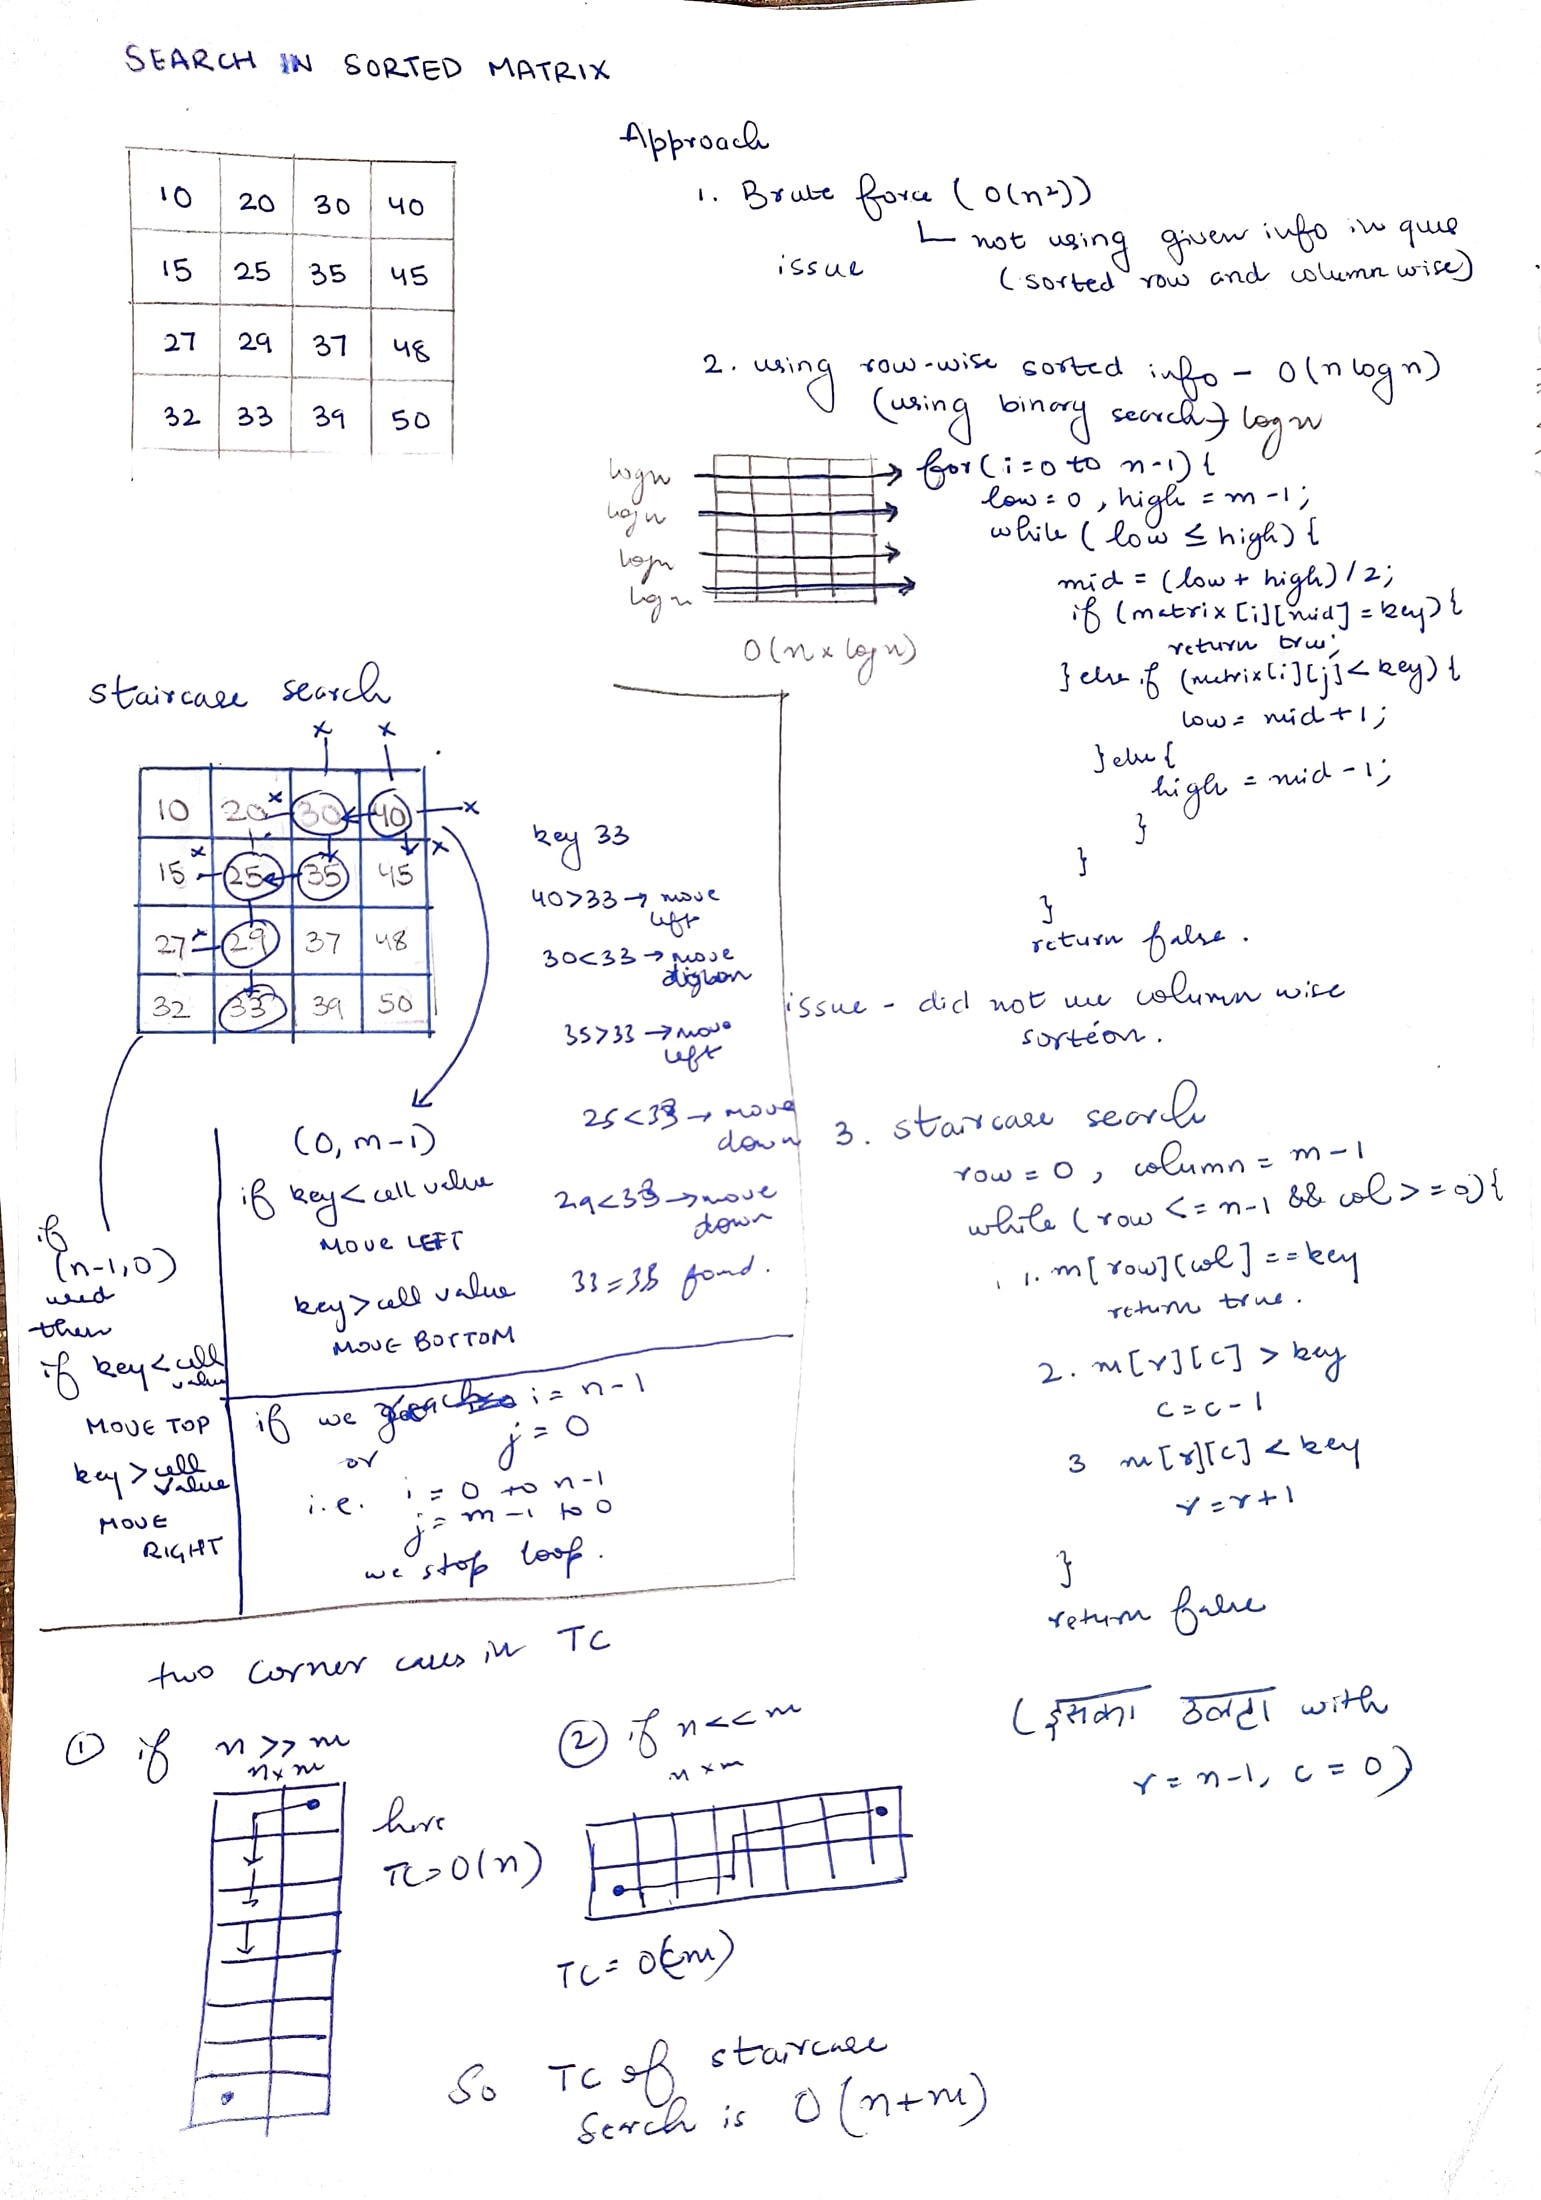 SEARCH IN SORTED MATRIX
10 20 30 40
15 25 35 45
27 29 37 48
32 33 39 50
Approach
1. Brute force (O(n²))
issue
not using given info in ques
(sorted row and column wise)
2. using row-wise sorted info - O(n log n)
(using binary search) log n
log n
log n
log n
log n
O(n x log n)
for(i=0 to n-1){
low=0, high = m-1;
while (low ≤ high){
mid = (low + high)/2;
if (matrix[i][mid] = key){
return true;
}else if (matrix[i][j] < key){
low = mid+1;
}else{
high = mid-1;
}
}
}
return false.
issue - did not use column wise
staircase search
x x
10 20 x 30 40 x
x 15 25 35 45 x
27 x 29 37 48
32 33 39 50
key 33
40>33 → move
left
30<33 → move
35>33 → move
left
25<33 → move
down
29<33 → move
down
33=33 fond.
(0, m-1)
if key < cell value
MOVE LEFT
key > cell value
MOVE BOTTOM
if
(n-1,0)
used
then
if key < cell
value
MOVE TOP
key > cell
value
MOVE
RIGHT
if we i = n-1
or j = 0
i.e. i = 0 to n-1
j = m-1 to 0
we stop loop.
3. staircase search
row = 0, column = m-1
while (row <= n-1 && col >= 0){
1. m[row][col] == key
return true.
2. m[r][c] > key
c = c-1
3 m[r][c] < key
r = r+1
}
return false
(इसका उल्टा with
r = n-1, c = 0)
two corner cases in TC
① if n >> m
n x m
here
TC = O(n)
② if n << m
n x m
TC = O(m)
So TC of staircase
Serch is O(n+m)